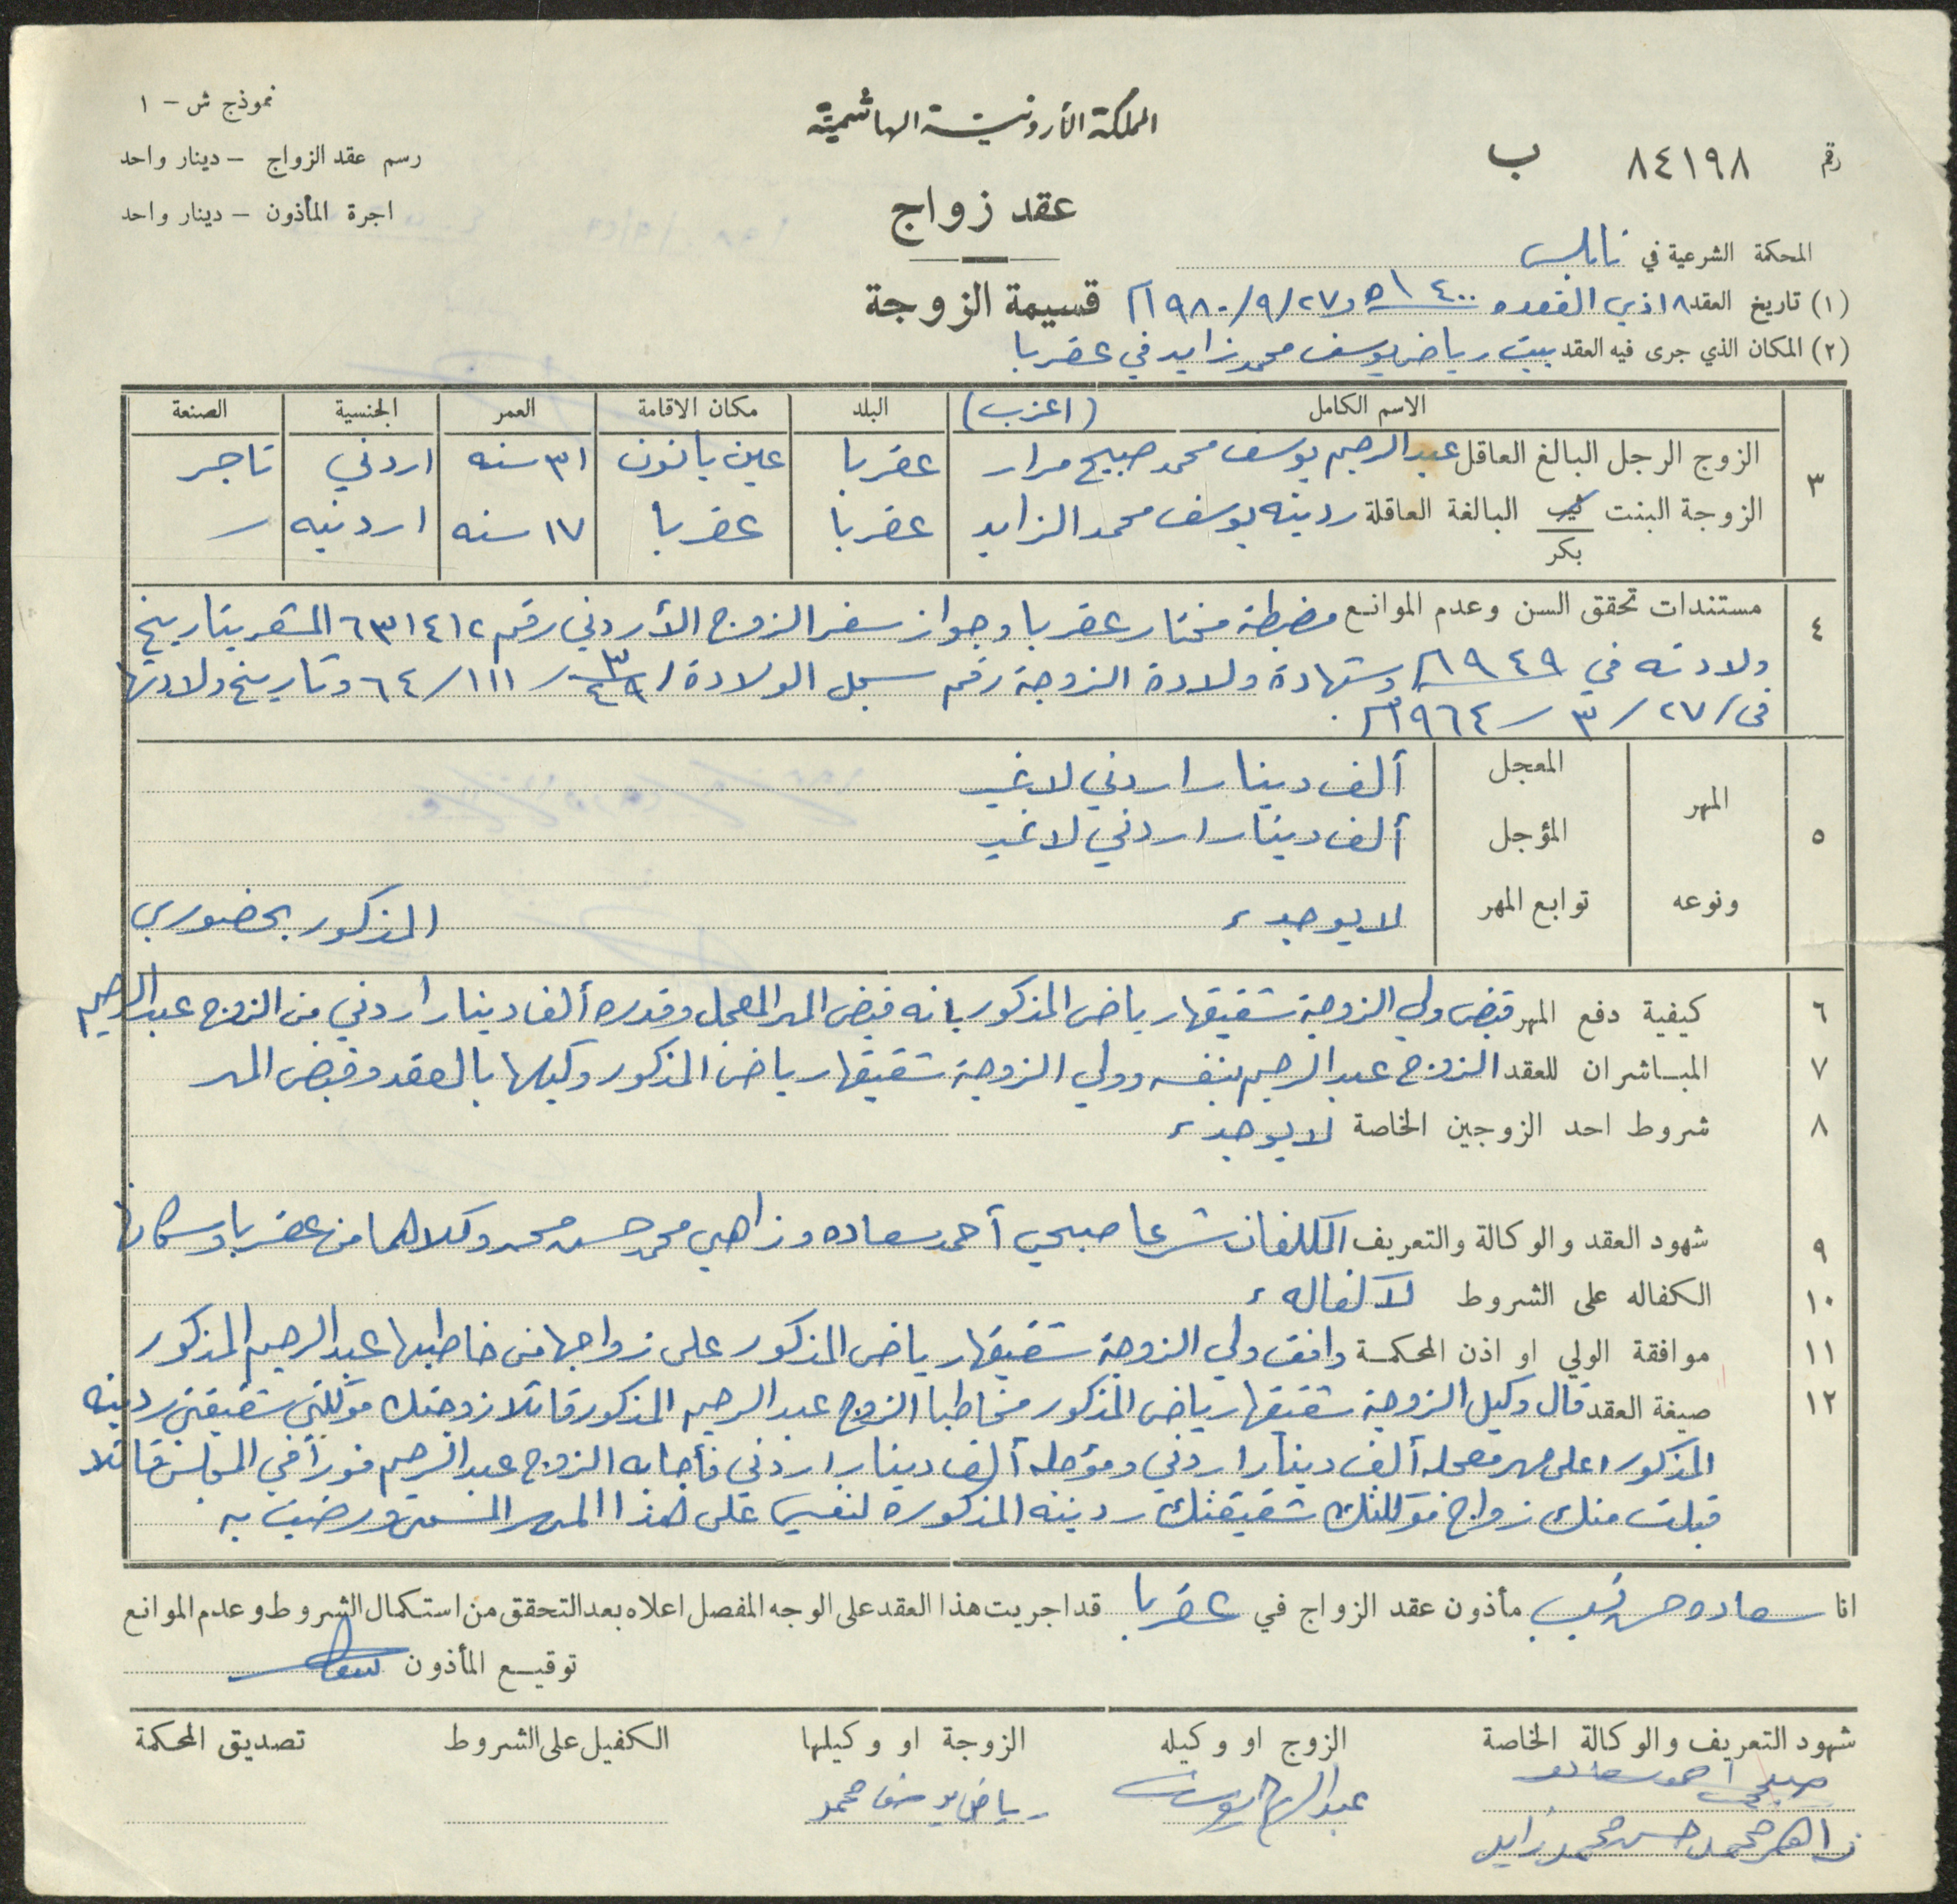 نموذج ش - ١
رسم عقد الزواج - دينار واحد
اجرة المأذون - دينار واحد
المملكة الأردنية الهاشمية
عقد زواج
قسيمة الزوجة
رقم ٨٤١٩٨ ب
المحكمة الشرعية في نابلس
(١) تاريخ العقد ١٨ ذي القعده ١٤٠٠هـ و ٢٧/٩/١٩٨٠م
(٢) المكان الذي جرى فيه العقد بيت رياض يوسف محمد زايد في عقربا
الاسم الكامل (اعزب) البلد مكان الاقامة العمر الجنسية الصنعة
٣ الزوج الرجل البالغ العاقل عبد الرحيم يوسف محمد صبيح مرار عقربا عين يانون ٣١ سنه اردني تاجر
الزوجة البنت ثيب البالغة العاقلة ردينه يوسف محمد الزايد عقربا عقربا ١٧ سنه اردنيه
بكر
٤ مستندات تحقق السن وعدم الموانع مضبطة مختار عقربا وجواز سفر الزوج الأردني رقم ٦٣١٤١٢ المشعر بتاريخ
ولادته في ١٩٤٩م وشهادة ولادة الزوجة رقم سجل الولادة / ٣/٤٩ / ١١١ / ٦٤ وتاريخ ولادتها
في / ٢٧ / ٣ / ١٩٦٤م.
٥ المهر ونوعه
المعجل ألف دينار اردني لا غير
المؤجل ألف دينار اردني لا غير
توابع المهر لا يوجد،
المذكور بحضوري
٦ كيفية دفع المهر قبض ولي الزوجة شقيقها رياض المذكور بانه قبض المهر المعجل وقدره ألف دينار اردني من الزوج عبد الرحيم
٧ المباشران للعقد الزوج عبد الرحيم بنفسه وولي الزوجة شقيقها رياض المذكور وكيلها بالعقد وقبض المهر
٨ شروط احد الزوجين الخاصة لا يوجد،
٩ شهود العقد والوكالة والتعريف المكلفان شرعا صبحي أحمد سعاده وزاهي محمد حسن محمد وكلاهما من عقربا وسكانها
١٠ الكفاله على الشروط لا كفاله،
١١ موافقة الولي او اذن المحكمة وافق ولي الزوجة شقيقها رياض المذكور على زواجها من خاطبها عبد الرحيم المذكور
١٢ صيغة العقد قال وكيل الزوجة شقيقها رياض المذكور مخاطبا الزوج عبد الرحيم المذكور قائلا زوجتك موكلتي شقيقتي ردينه
المذكوره على مهر معجله ألف دينار اردني ومؤجله ألف دينار اردني فأجابه الزوج عبد الرحيم فوراً في المجلس قائلا
قبلت منك زواج موكلتك شقيقتك ردينه المذكوره لنفسي على هذا المهر المسمى ورضيت به
انا سعاده مأذون عقد الزواج في عقربا قد اجريت هذا العقد على الوجه المفصل اعلاه بعد التحقق من استكمال الشروط وعدم الموانع
توقيع المأذون
شهود التعريف والوكالة الخاصة الزوج او وكيله الزوجة او وكيلها الكفيل على الشروط تصديق المحكمة
صبحي احمد سعاده عبد الرحيم يوسف رياض يوسف محمد
زاهي محمد حسن محمد زايد